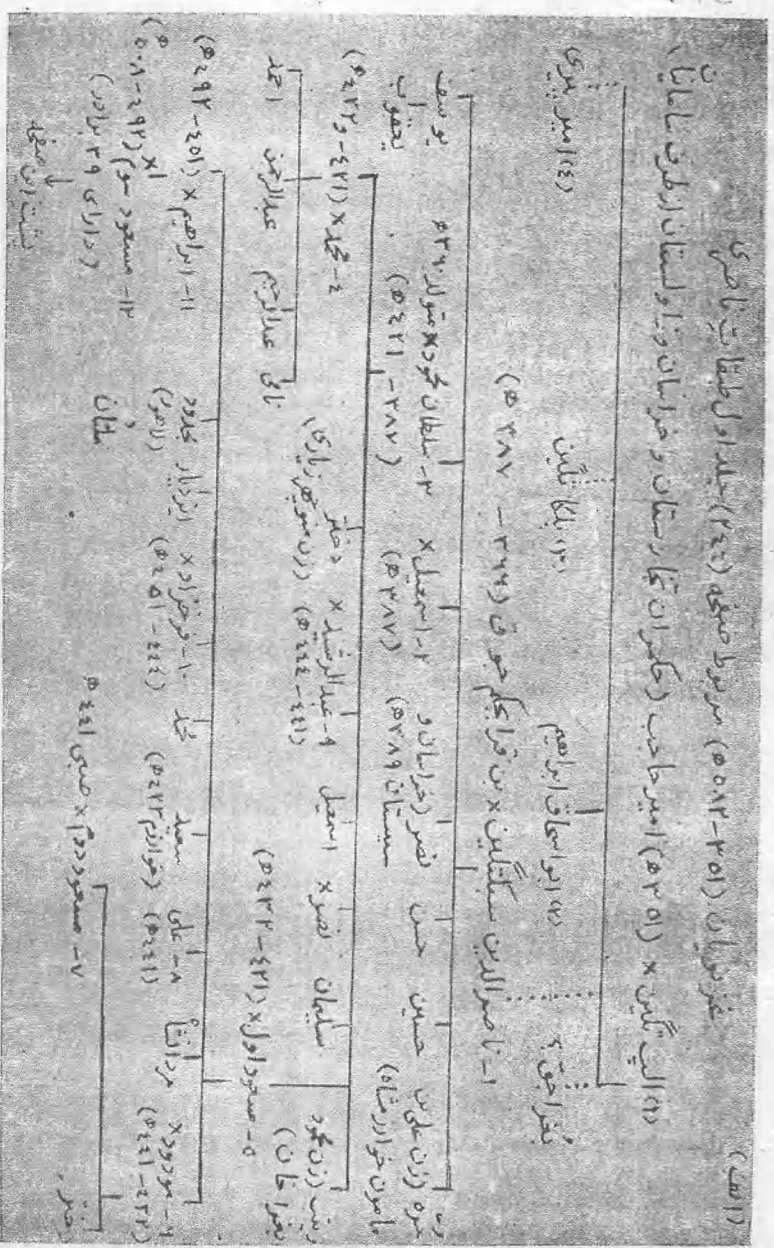 (الف)
غزنویان (۳۵۱-۵۸۲ ھ) مربوط صفحه (۲۴۴) جلد اول طبقات ناصری
(۱) الپ تگین × (۳۵۱ ھ) امیر حاجب (حکمران تخارستان و خراسان و زاولستان از طرف سامانیان)
بغراجق ؟ (۲) ابو اسحاق ابراهیم (۳) بلکاتگین (۴) امیر پیری
۱- ناصرالدین سبکتگین × بن قرابجکم جوق (۳۶۶ - ۳۸۷ ھ)
حره (زن علی بن مامون خوارزمشاه) حسین حسن نصر (خراسان و سیستان ۳۸۹ ھ) ۲- اسمعیل × (۳۸۷ ھ) ۳- سلطان محمود × متولد ۳۶۰ ھ (۳۸۷-۴۲۱ ھ) یوسف یعقوب
زینب (زن محمود بغرا خان) ۵- مسعود اول × (۴۲۱-۴۳۲ ھ) سلیمان نصر × اسمعیل ۹- عبدالرشید × (۴۴۱-۴۴۴ ھ) دختر (زن منوچهر زیاری) ۴- محمد × (۴۲۱ و ۴۳۲ ھ)
نامی عبدالرحیم عبدالرحمن احمد
۶- مودود × (۴۳۲-۴۴۱ ھ) مردانشاه ۸- علی (۴۴۱ ھ) سعید (خوارزم ۴۲۳ ھ) محمد ۱۰- فرخزاد × (۴۴۴-۴۵۱ ھ) ایزدیار مجدود (لاهور و ملتان) ۱۱- ابراهیم × (۴۵۱-۴۹۲ ھ)
دختر ۷- مسعود دوم × صبی ۴۴۱ ھ
۱۲- مسعود سوم × (۴۹۲-۵۰۸ ھ)
(دارای ۳۹ برادر)
پشت این صفحه